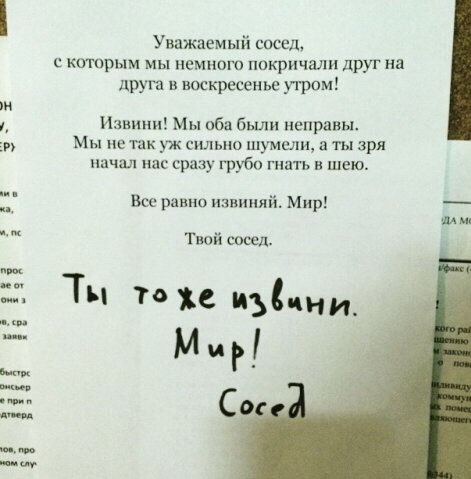 Уважаемый сосед,
с которым мы немного покричали друг на
друга в воскресенье утром!
Извини! Мы оба были неправы.
Мы не так уж сильно шумели, а ты зря
начал нас сразу грубо гнать в шею.
Все равно извиняй. Мир!
Твой сосед.
Ты тоже извини.
Мир!
Сосед